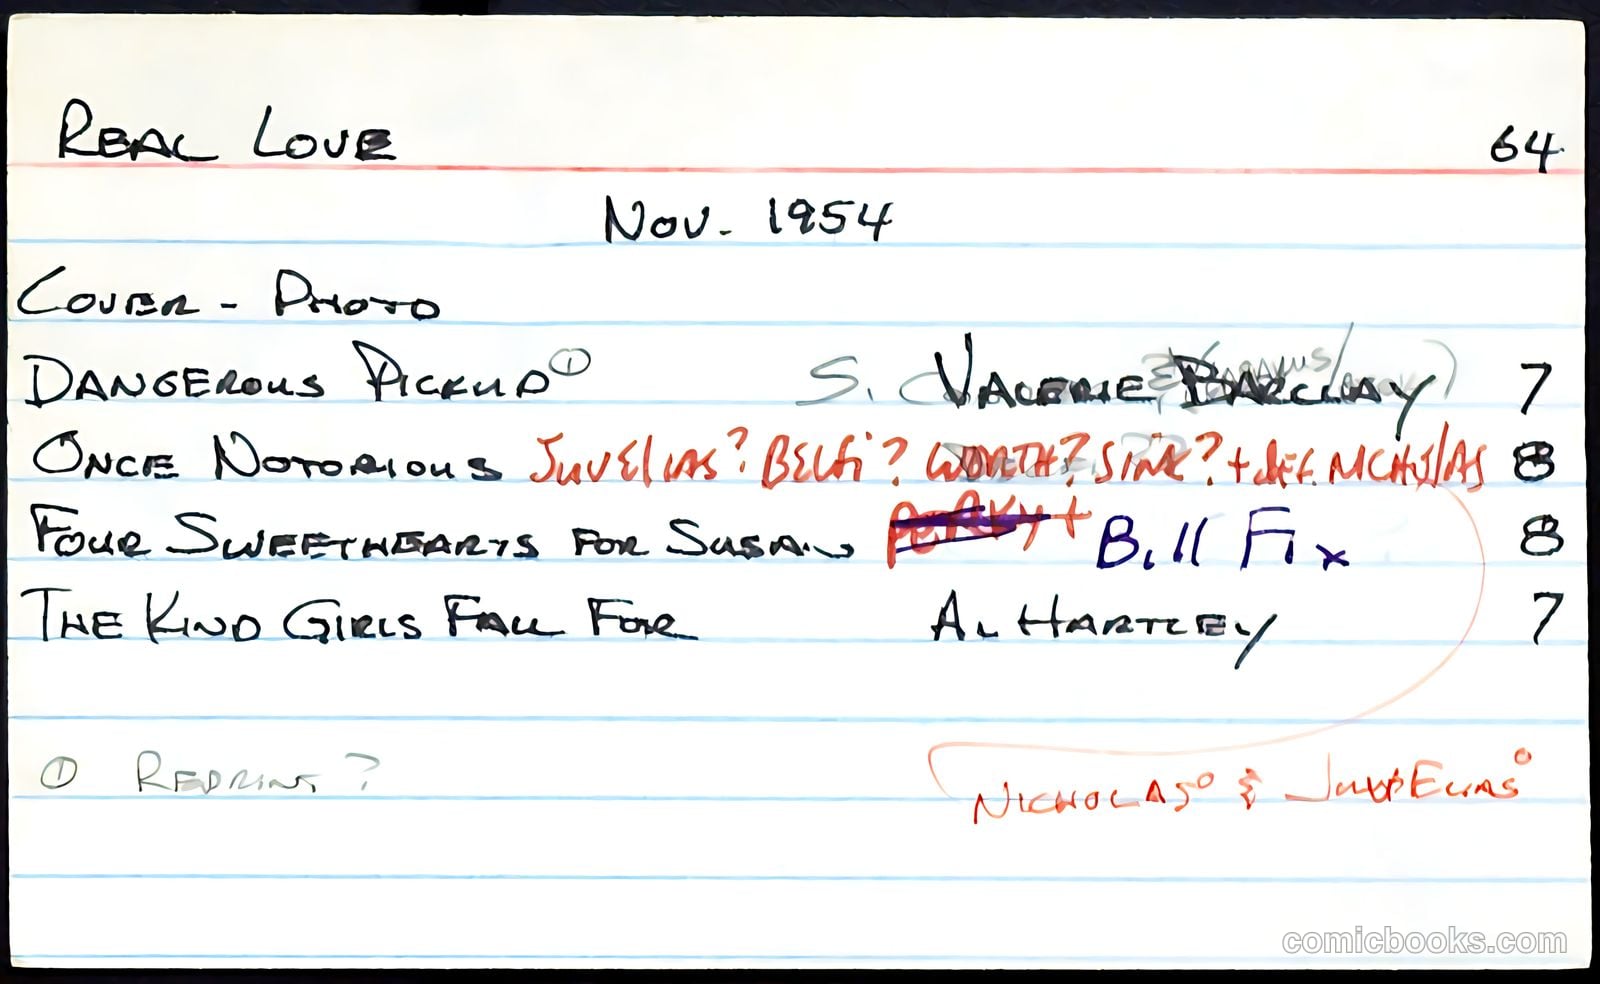 REAL LOVE 64
NOV. 1954
COVER - PHOTO
DANGEROUS PICKUP ① S. VALERIE BARCLAY 7
ONCE NOTORIOUS JUVELIAS? BELFI? WORTH? SINK? + def. NICHOLAS 8
FOUR SWEETHEARTS FOR SUSAN + Bill Fix 8
THE KIND GIRLS FALL FOR AL HARTLEY 7
① REPRINT?
NICHOLAS &
comicbooks.com